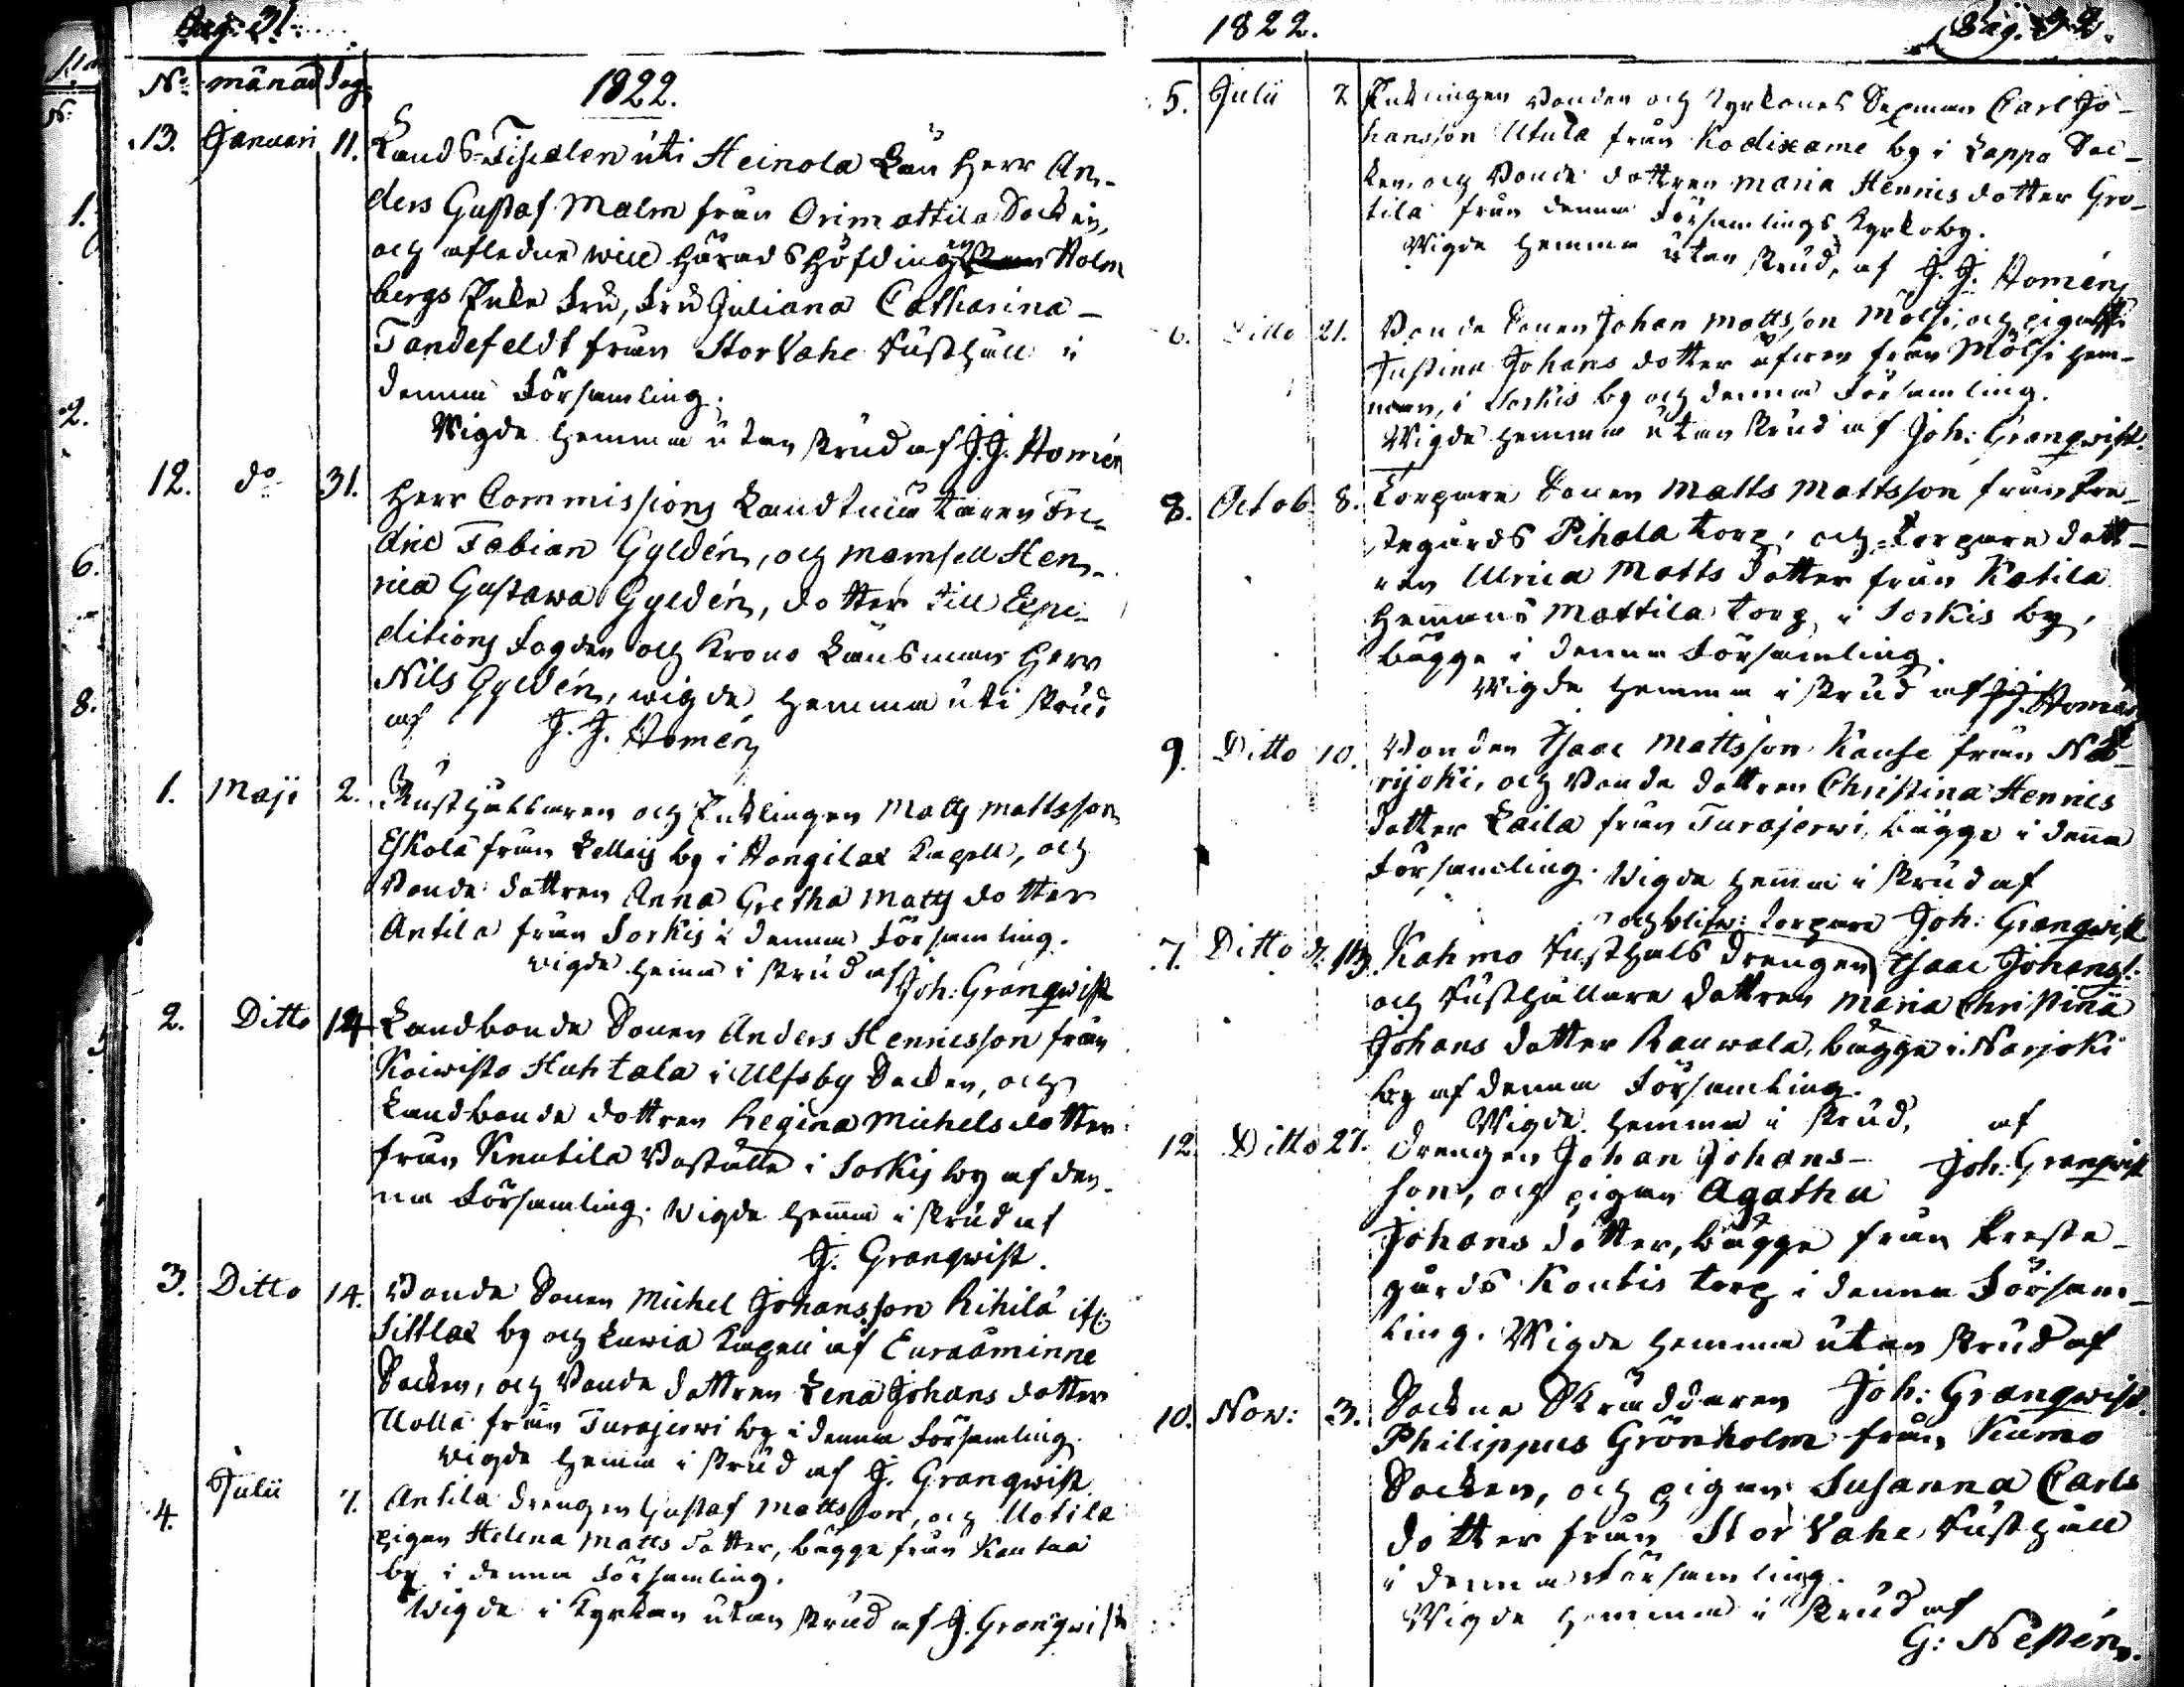 Pag. 31.
No månad dag
1822.
13. Januari 11. Lands-Fiscalen uti Heinola Län Herr An-
ders Gustaf Malm från Orimattila Socken,
och afledne wice Häradshöfding Holm
bergs Enke Fru, Fru Juliana Catharina
Tandefeldt från Storvahe Rusthåll i
denna Församling.
Wigde hemma utan skrud af J.J. Homén
12. do 31. Herr Commissions Landtmätaren Fre-
dric Fabian Gyldén, och Mamsell Hen-
rica Gustawa Gyldén, dotter till Expe-
ditions Fogden och Krono Länsman Herr
Nils Gyldén, wigde hemma uti skrud
af J. J. Homén
1. Maji 2. Rusthållaren och Enklingen Matts Mattsson
Eskola från Lellais by i Hongilax Capell, och
Bonde dottren Anna Gretha Matts dotter
Antila från Sorkis i denna Församling.
wigde hemma i skrud af
Joh: Granqwist
2. Ditto 14 Landbonde Sonen Anders Henricsson från
Koiwisto Huhtala i Ulfsby Socken, och
Landbonde dottren Regina Michelsdotter
från Knutila Boställe i Sorkis by af den-
na Församling. Wigde hemma i skrud af
J. Granqwist.
3. Ditto 14. Bonde Sonen Michel Johansson Rihilä
Sittlax by och Luvia Capell af Euraåminne
Socken, och Bonde dottren Lena Johans dotter
Uolla från Turajerwi by i denna Församling.
wigde hemma i skrud af J. Granqwist
4. Julii 7. Antila drengen Gustaf Mattsson, och Uotila
pigan Helena Matts dotter, bägge från Kauttua
by i denna Församling.
Wigde i Kyrkan utan skrud af J. Granqwist
1822. Pag. 32.
5. Julii 7 Enklingen Bonden och Kyrkones Sexman Carl Jo-
hansson Utula från Kodixame by i Lappo Soc-
ken, och Bonde dottren Maria Henrics dotter Gro-
tila från denna Församlings Kyrkoby.
Wigde hemma utan skrud, af J. J. Homén
6. Ditto 21. Bonde Sonen Johan Mattsson Mölsi, och pigan
Justina Johans dotter äfwen från Mölsi hem-
man, i Sorkis by och denna Församling.
Wigde hemma utan skrud af Joh: Granqwist.
8. Octob. 8. Torpare Sonen Matts Mattsson från Pre-
stegårds Pihala torp, och torpare dott-
ren Ulrica Matts dotter från Katila
hemmans Mattila torp, i Sorkis by,
bägge i denna Församling.
Wigde hemma i skrud af J.J. Homén
9. Ditto 10. Bonden Isaac Mattsson Kause från Na-
rijoki, och Bonde dottren Christina Henrics
dotter Laila från Turajerwi, bägge i denna
Församling. Wigde hemma i skrud af
och blifw: torpare Joh: Granqwist
7. Ditto d. 13. Kahmo Rusthålls drengen Isaac Johanss:
och Rusthållare dottren Maria Christina
Johans dotter Rauwola, bägge i Narjoki
by af denna Församling.
Wigde hemma i skrud, af
Joh: Granqwist
12. Ditto 27. Drengen Johan Johans-
son, och pigan Agatha
Johans dotter, bägge från Preste-
gårds Koukis torp i denna Försam-
ling. Wigde hemma utan skrud af
Joh: Granqwist.
10. Nov: 3. Sockne Skräddaren
Philippus Grönholm från Kumo
Socken, och pigan Susanna Carls
dotter från Stor Vahe Rusthåll
i denna Församling.
Wigde hemma i skrud af
G: Nestén.